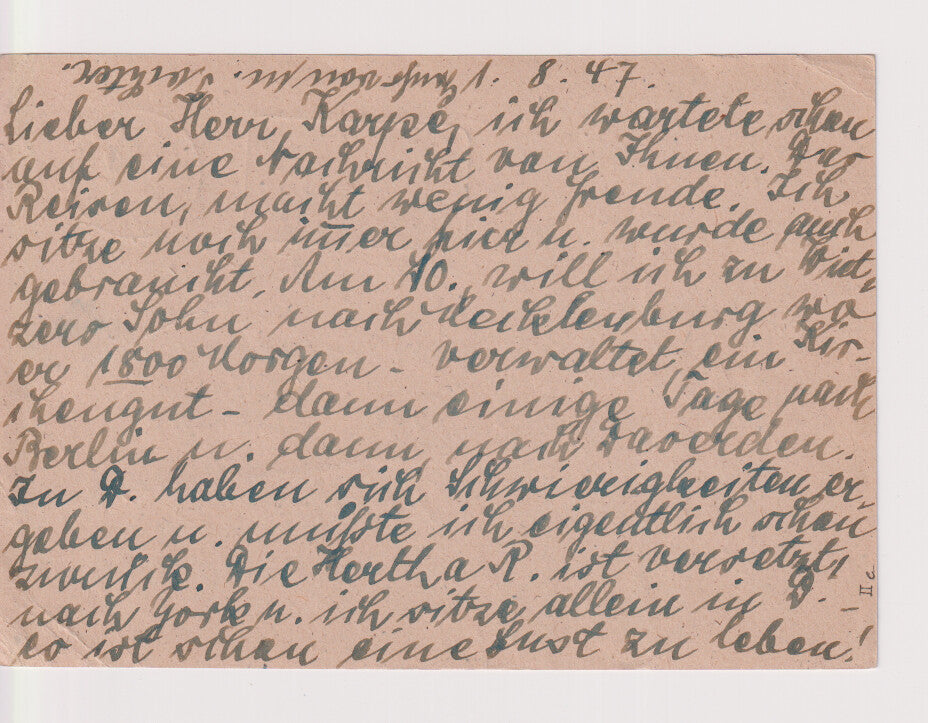 Gruß von m. Tochter.
1. 8. 47.
Lieber Herr Karpé, ich wartete schon
auf eine Nachricht von Ihnen. Das
Reisen, macht wenig Freude. Ich
sitze noch im̅er hier u. wurde auch
gebraucht. Am 10. will ich zu
zers Sohn nach Mecklenburg wo
er 1800 Morgen - verwaltet, ein Kir-
chengut - dann einige Tage nach
Berlin u. dann nach Daverden.
In D. haben sich Schwierigkeiten er,
geben u. müßte ich eigentlich schon
zurück. Die Hertha R. ist versetzt,
nach York u. ich sitze allein in D. -
es ist schon eine Lust zu leben!
II c